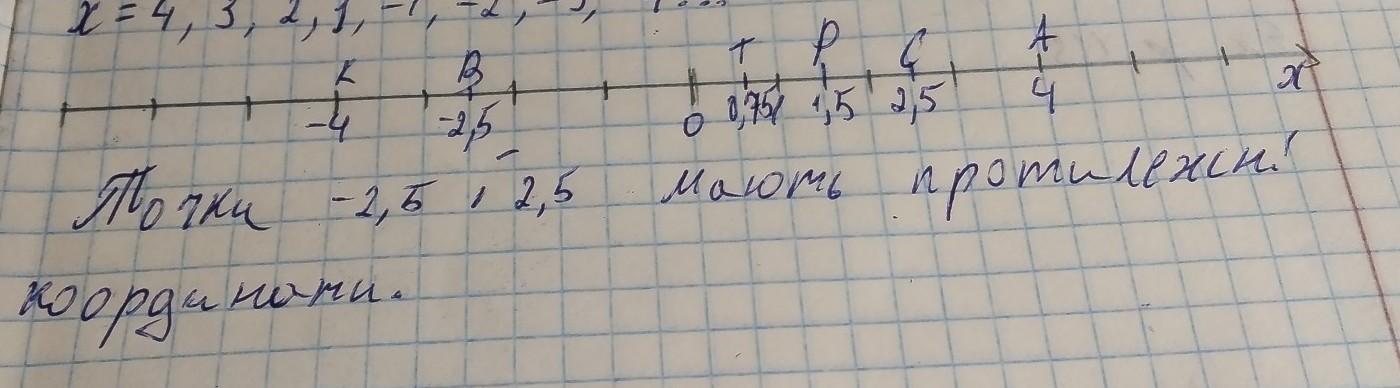 x = 4, 3, 2, 1, -1, -2, -3,
K B T P C A
-4 -2,5 0 0,75 1 1,5 2,5 4 x
Точки -2,5 і 2,5 мають протилежні
координати.